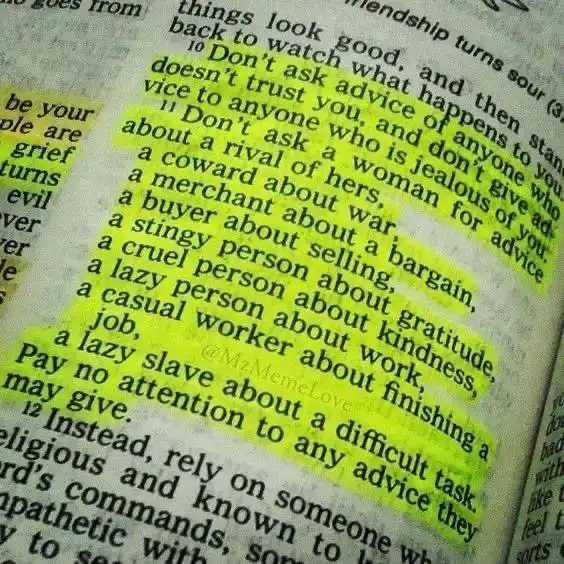 goes from
be your
ple are
grief
turns
evil
ver
riendship turns sour (3
things look good, and then stan
back to watch what happens to you.
10 Don't ask advice of anyone who
doesn't trust you, and don't give ad-
vice to anyone who is jealous of you.
11 Don't ask a woman for advice
about a rival of hers,
a coward about war,
a merchant about a bargain,
a buyer about selling,
a stingy person about gratitude,
a cruel person about kindness,
a lazy person about work,
a casual worker about finishing a
job,
a lazy slave about a difficult task.
Pay no attention to any advice they
may give.
12 Instead, rely on someone wh
eligious and known to
rd's commands, som
mpathetic with
y to se
@MzMemeLove
had
with
like t
feel t
sorts